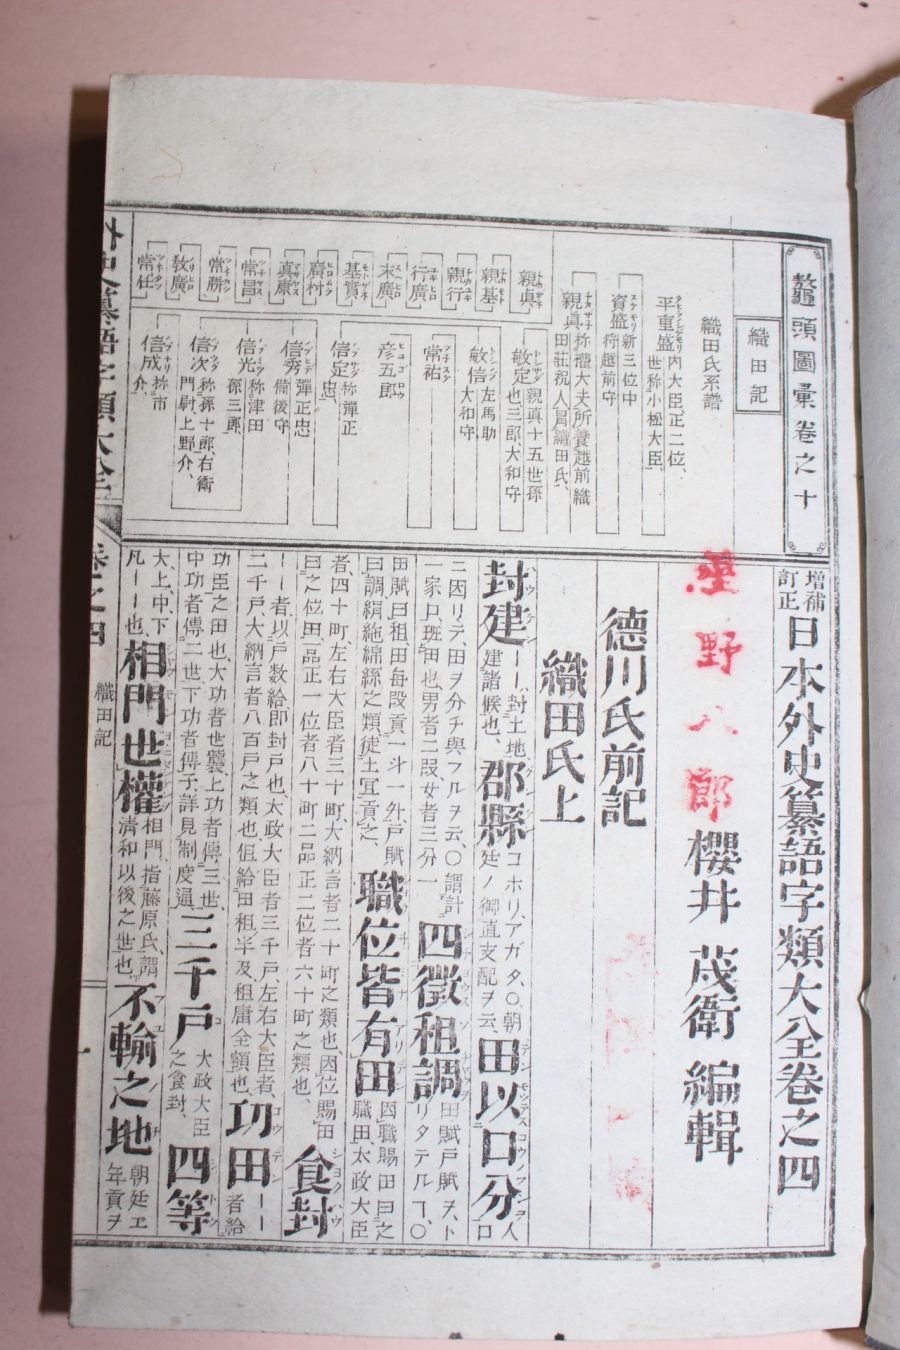 鼇頭圖彙卷之十
織田記
織田氏系譜
平重盛 内大臣正二位、世称小松大臣、
資盛 新三位中 将越前守
親眞 称權大夫所養越前織田莊祝人冐織田氏、
親眞
親基
親行
行廣
末廣
基實
廣村
眞康
常昌
常勝
敎廣
常任
敏定 親眞十五世孫也三郎、大和守
敏信 左馬助 大和守
常祐
彦五郎
信定 称彈正忠、
信秀 彈正忠 備後守
信光 称津田孫三郎、
信次 称孫十郎、右衛門尉上野介、
信成 称市介、
增補訂正 日本外史纂語字類大全卷之四
櫻井 茂衛 編輯
德川氏前記
織田氏上
封建 ーー、封土地建諸候也、 郡縣 コホリ、アガタ、〇朝廷ノ御直支配ヲ云、 田以口分 人口
ニ因リテ、田ヲ分チ與フルヲ云、〇謂計一家口、班田也男者二段、女者三分一 四徵租調 田賦戸賦ヲ、トリタテルヿ、〇
田賦曰租、田每段貢一斗一外、戸賦曰調、絹絁綿絲之類、徒土宜貢之、 職位皆有田 因職賜田曰之職田、太政大臣
者、四十町、左右大臣者三十町、大納言者二十町之類也、因位賜田曰之位田、一品正一位者八十町二品正二位者六十町之類也、 食封
ーー者、以戸数給即封戸也、太政大臣者三千戸左右大臣者、二千戸大納言者八百戸之類也、但給田租半及租庸全額也、 功田 ーー者給
功臣之田也、大功者世襲、上功者傳三世、中功者傳二世、下功者傳子、詳見制度通、 三千戸 大政大臣之食封、 四等
大、上、中、下凡ーー也、 相門世權 相門、指藤原氏、謂清和以後之世也、 不輸之地 朝廷ヱ年貢ヲ
外史纂語字類大全 卷之四 織田記 一